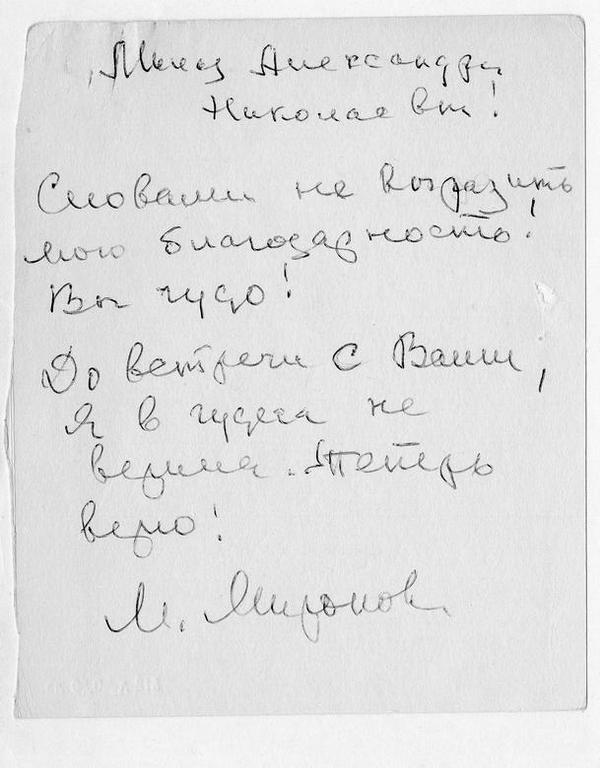 Милая Александра
Николаевна!
Словами не выразить
мою благодарность!
Вы чудо!
До встречи с Вами,
я в чудеса не
верила. Теперь
верю!
М. Миронова